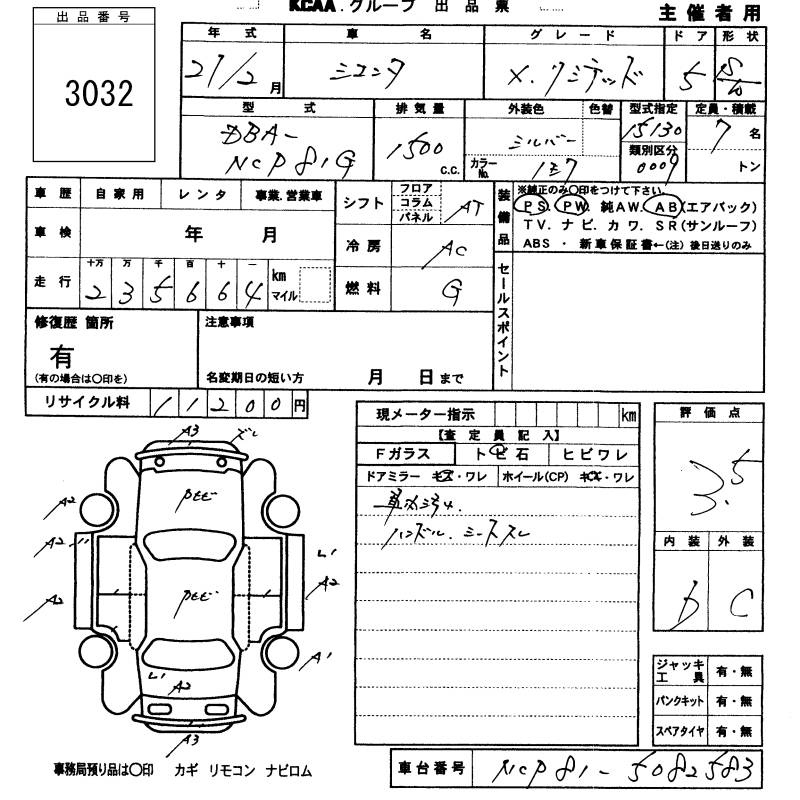 KCAA.グループ 出品票
主催者用
出品番号
3032
年式 車名 グレード ドア 形状
21/2月 シエンタ X.リミテッド 5 S/W
型式 排気量 外装色 色替 型式指定 定員・積載
DBA-NCP81G 1500 c.c. シルバー カラーNo. 1E7 15130 7名
類別区分 0009 トン
車歴 自家用 レンタ 事業.営業車
シフト フロア コラム パネル AT
装備品 ※純正のみ〇印をつけて下さい.
PS. PW. 純AW. AB(エアバック)
TV. ナビ. カワ. SR(サンルーフ)
ABS ・ 新車保証書←(注) 後日送りのみ
車検 年 月
冷房 AC
走行 十万 万 千 百 十 一
2 3 5 6 6 4 km マイル
燃料 G
セールスポイント
修復歴 箇所
有
(有の場合は〇印を)
注意事項
名変期日の短い方 月 日まで
リサイクル料 11200円
現メーター指示 km
【査定員記入】
Fガラス トビ石 ヒビワレ
ドアミラー キズ・ワレ ホイール(CP) キズ・ワレ
ハンドル.シートスレ
評価点
3.5
内装 外装
D C
ジャッキ工具 有・無
パンクキット 有・無
スペアタイヤ 有・無
A3
A2
A2
A2
A2
A1
A2
A3
事務局預り品は〇印 カギ リモコン ナビロム
車台番号 NCP81-5082583